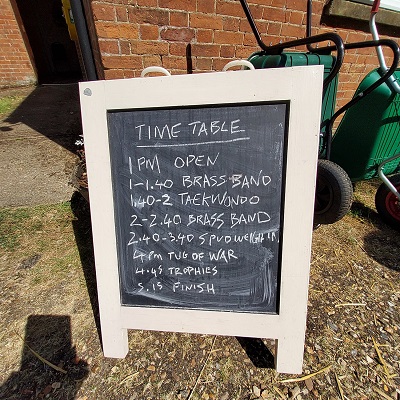 TIME TABLE
1PM OPEN
1-1.40 BRASS BAND
1.40-2 TAEKWONDO
2-2.40 BRASS BAND
2.40-3.40 SPUD WEIGH IN
4PM TUG OF WAR
4.45 TROPHIES
5.15 FINISH